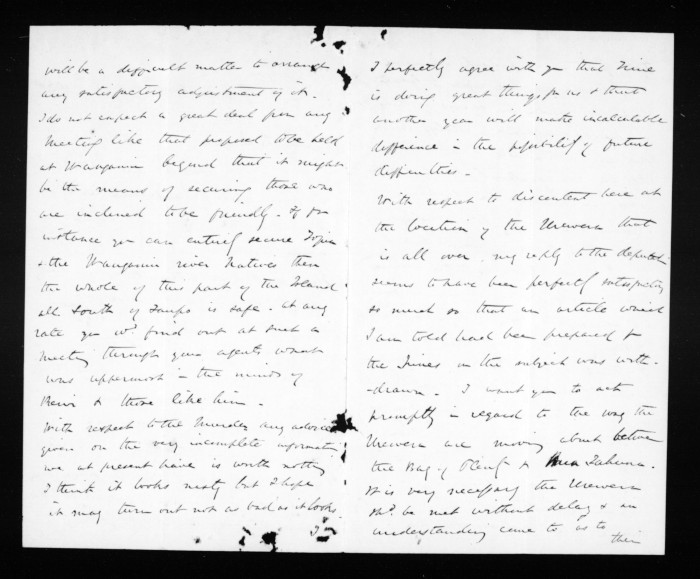 will be a difficult matter to arrange
any satisfactory adjustment of it.
I do not expect a great deal from any
Meeting like that proposed to be held
at Wanganui beyond that it might
be the means of securing those who
are inclined to be friendly. If for
instance you can entirely secure Topia
& the Wanganui river Natives then
the whole of this part of the Island
all South of Taupo is safe. At any
rate you wd. find out at such a
Meeting through your agents what
was uppermost in the minds of
Rewi & those like him.
With respect to the Murder any advice
given on the very incomplete information
we at present have is worth nothing
I think it looks nasty but I hope
it may turn out not as bad as it looks.
I perfectly agree with you that Time
is doing great things for us & that
another year will make incalculable
difference in the possibility of future
difficulties.
With respect to discontent here at
the location of the Urewera that
is all over. my reply to the deputation
seems to have been perfectly satisfactory
so much so that an article which
I am told had been prepared for
the Times on the subject was with-
-drawn. I want you to act
promptly in regard to the way the
Urewera are moving about between
the Bay of Plenty & Tahuna.
It is very necessary the Urewera
shd. be met without delay & an
understanding come to as to
their